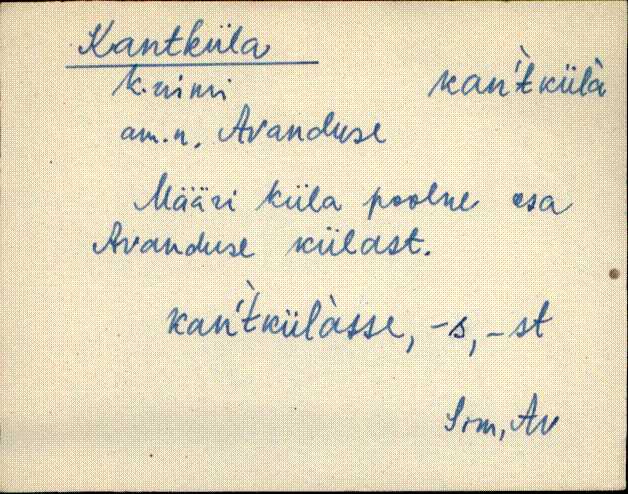 Kantküla
k. nimi kan̆'t̀külà
am.n. Avanduse
Määri küla poolne osa
Avanduse külast.
kan't̀külàsse, -s, -st
Sim, Av